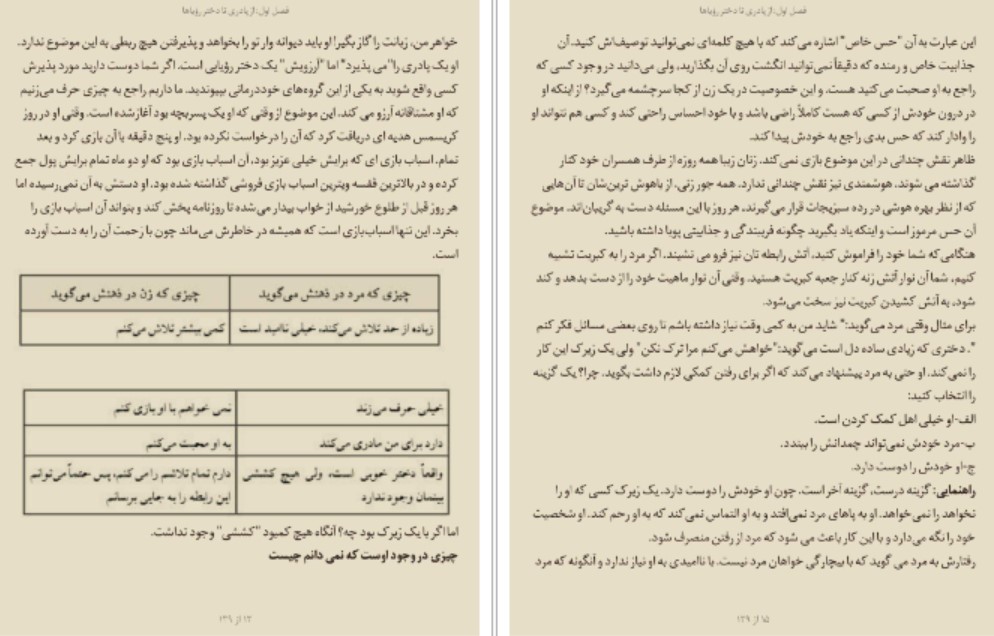 فصل اول: از پادری تا دختر رؤیاها
خواهر من، زبانت را گاز بگیر! او باید دیوانه وار تو را بخواهد و پذیرفتن هیچ ربطی به این موضوع ندارد.
او یک پادری را"می پذیرد" اما "آرزویش" یک دختر رؤیایی است. اگر شما دوست دارید مورد پذیرش
کسی واقع شوید به یکی از این گروه‌های خوددرمانی بپیوندید. ما داریم راجع به چیزی حرف می‌زنیم
که او مشتاقانه آرزو می کند. این موضوع از وقتی که او یک پسربچه بود آغازشده است. وقتی او در روز
کریسمس هدیه ای دریافت کرد که آن را درخواست نکرده بود. او پنج دقیقه با آن بازی کرد و بعد
تمام. اسباب بازی ای که برایش خیلی عزیز بود، آن اسباب بازی بود که او دو ماه تمام برایش پول جمع
کرده و در بالاترین قفسه ویترین اسباب بازی فروشی گذاشته شده بود. او دستش به آن نمی‌رسیده اما
هر روز قبل از طلوع خورشید از خواب بیدار می‌شده تا روزنامه پخش کند و بتواند آن اسباب بازی را
بخرد. این تنها اسباب‌بازی است که همیشه در خاطرش می‌ماند چون با زحمت آن را به دست آورده
است.
چیزی که مرد در ذهنش می‌گوید چیزی که زن در ذهنش می‌گوید
زیاده از حد تلاش می‌کند، خیلی ناامید است کمی بیشتر تلاش می‌کنم
خیلی حرف می‌زند نمی خواهم با او بازی کنم
دارد برای من مادری می‌کند به او محبت می‌کنم
واقعاً دختر خوبی است، ولی هیچ کششی دارم تمام تلاشم را می‌کنم، پس حتماً می‌توانم
بینمان وجود ندارد این رابطه را به جایی برسانم
اما اگر با یک زیرک بود چه؟ آنگاه هیچ کمبود "کششی" وجود نداشت.
چیزی در وجود اوست که نمی دانم چیست
۱۳ از ۱۳۹
فصل اول: از پادری تا دختر رؤیاها
این عبارت به آن "حس خاص" اشاره می کند که با هیچ کلمه‌ای نمی‌توانید توصیف‌اش کنید. آن
جذابیت خاص و رمنده که دقیقاً نمی‌توانید انگشت روی آن بگذارید، ولی می‌دانید در وجود کسی که
راجع به او صحبت می کنید هست. و این خصوصیت در یک زن از کجا سرچشمه می‌گیرد؟ از اینکه او
در درون خودش از کسی که هست کاملاً راضی باشد و با خود احساس راحتی کند و کسی هم نتواند او
را وادار کند که حس بدی راجع به خودش پیدا کند.
ظاهر نقش چندانی در این موضوع بازی نمی‌کند. زنان زیبا همه روزه از طرف همسران خود کنار
گذاشته می شوند. هوشمندی نیز نقش چندانی ندارد. همه جور زنی، از باهوش ترین‌شان تا آن‌هایی
که از نظر بهره هوشی در رده سبزیجات قرار می‌گیرند، هر روز با این مسئله دست به گریبان‌اند. موضوع
آن حس مرموز است و اینکه یاد بگیرید چگونه فریبندگی و جذابیتی پویا داشته باشید.
هنگامی‌که شما خود را فراموش کنید، آتش رابطه تان نیز فرو می نشیند. اگر مرد را به کبریت تشبیه
کنیم، شما آن نوار آتش زنه کنار جعبه کبریت هستید. وقتی آن نوار ماهیت خود را از دست بدهد و کند
شود، به آتش کشیدن کبریت نیز سخت می‌شود.
برای مثال وقتی مرد می‌گوید:" شاید من به کمی وقت نیاز داشته باشم تا روی بعضی مسائل فکر کنم
". دختری که زیادی ساده دل است می‌گوید:"خواهش می‌کنم مرا ترک نکن" ولی یک زیرک این کار
را نمی‌کند. او حتی به مرد پیشنهاد می‌کند که اگر برای رفتن کمکی لازم داشت بگوید. چرا؟ یک گزینه
را انتخاب کنید:
الف-او خیلی اهل کمک کردن است.
ب-مرد خودش نمی‌تواند چمدانش را ببندد.
ج-او خودش را دوست دارد.
راهنمایی: گزینه درست، گزینه آخر است. چون او خودش را دوست دارد. یک زیرک کسی که او را
نخواهد را نمی‌خواهد. او به پاهای مرد نمی‌افتد و به او التماس نمی‌کند که به او رحم کند. او شخصیت
خود را نگه می‌دارد و با این کار باعث می شود که مرد از رفتن منصرف شود.
رفتارش به مرد می گوید که با بیچارگی خواهان مرد نیست. با ناامیدی به او نیاز ندارد و آنگونه که مرد
۱۵ از ۱۳۹